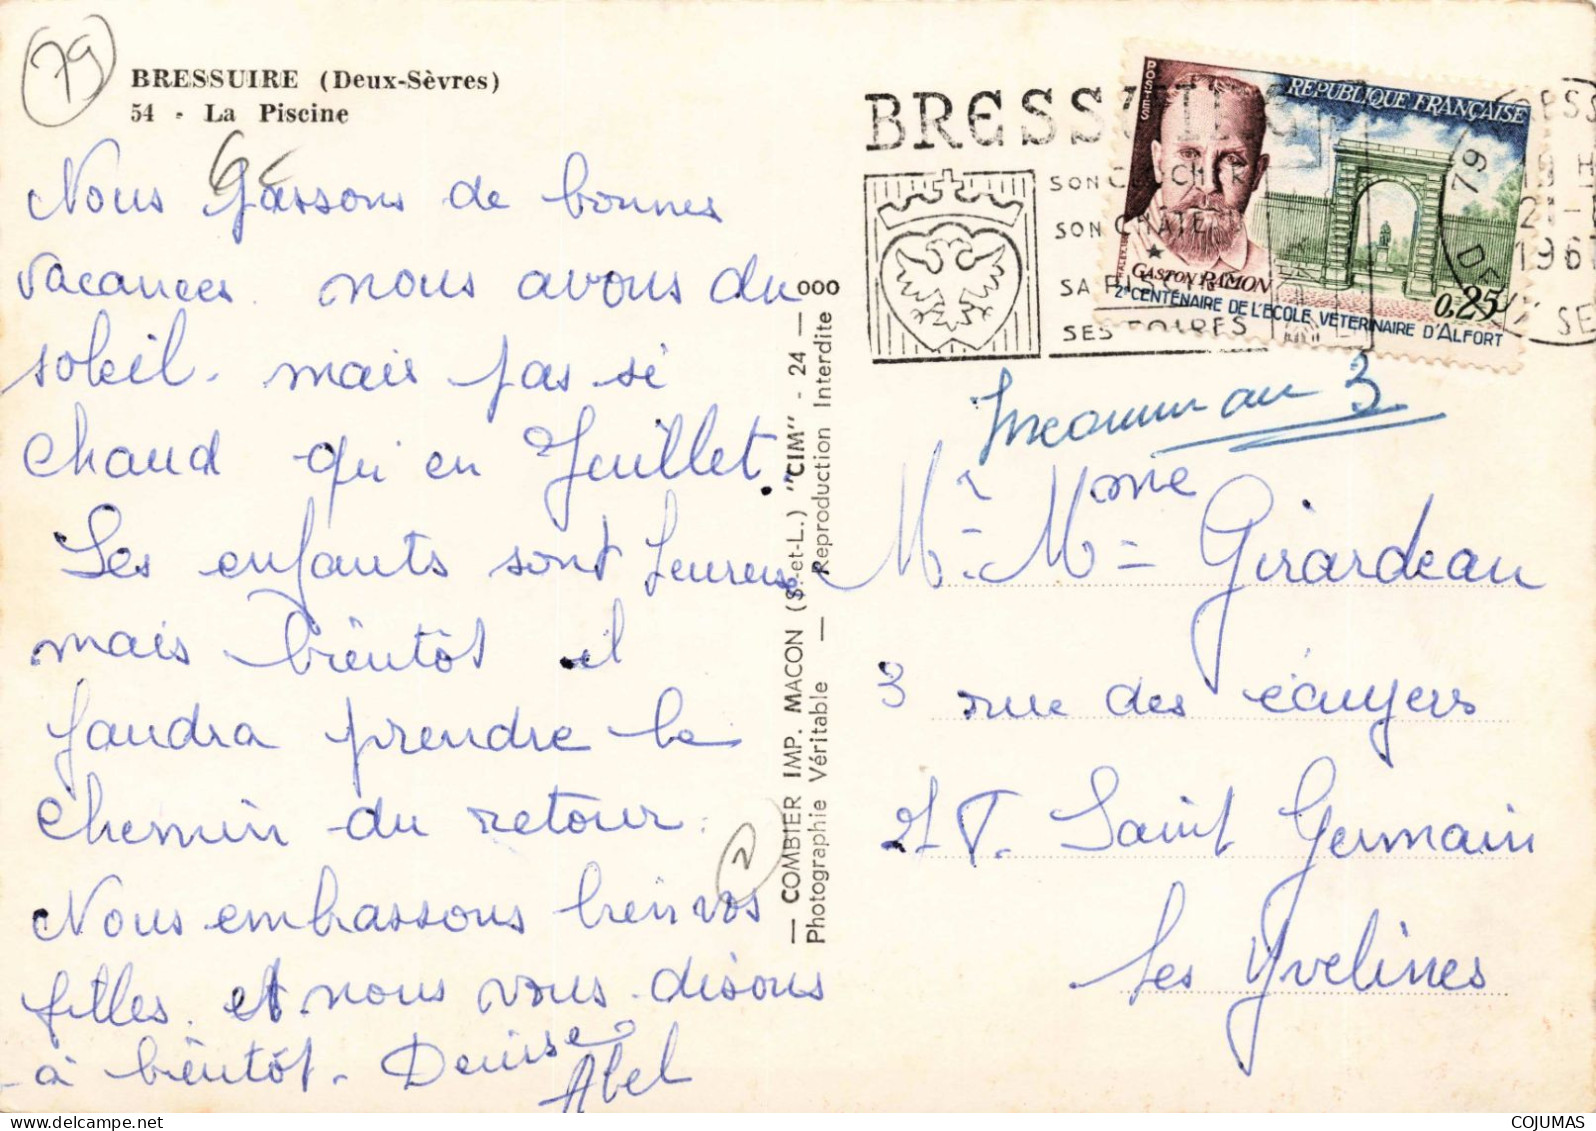 79
BRESSUIRE (Deux-Sèvres)
54 - La Piscine
6€
Nous passons de bonnes
vacances. nous avons du
soleil. mais pas si
chaud qu'en Juillet.
Les enfants sont heureux
mais bientôt il
faudra prendre le
chemin du retour.
Nous embrassons bien vos
filles. et nous vous disons
à bientôt. Denise
Abel
2
— COMBIER IMP. MACON (S.-et-L.) "CIM" - 24 — 000
Photographie Véritable — Reproduction Interdite
BRESSUIRE
SON CLOCHER
SON CHÂTEAU
SA PISCINE
SES FOIRES
POSTES
REPUBLIQUE FRANÇAISE
GASTON RAMON
0,25
2e CENTENAIRE DE L'ECOLE VETERINAIRE D'ALFORT
79
19 H
21-
196
DEUX SE
Inconnu au 3
Mr. Mme Girardeau
3 rue des écuyers
Saint Germain
les Yvelines
COJUMAS